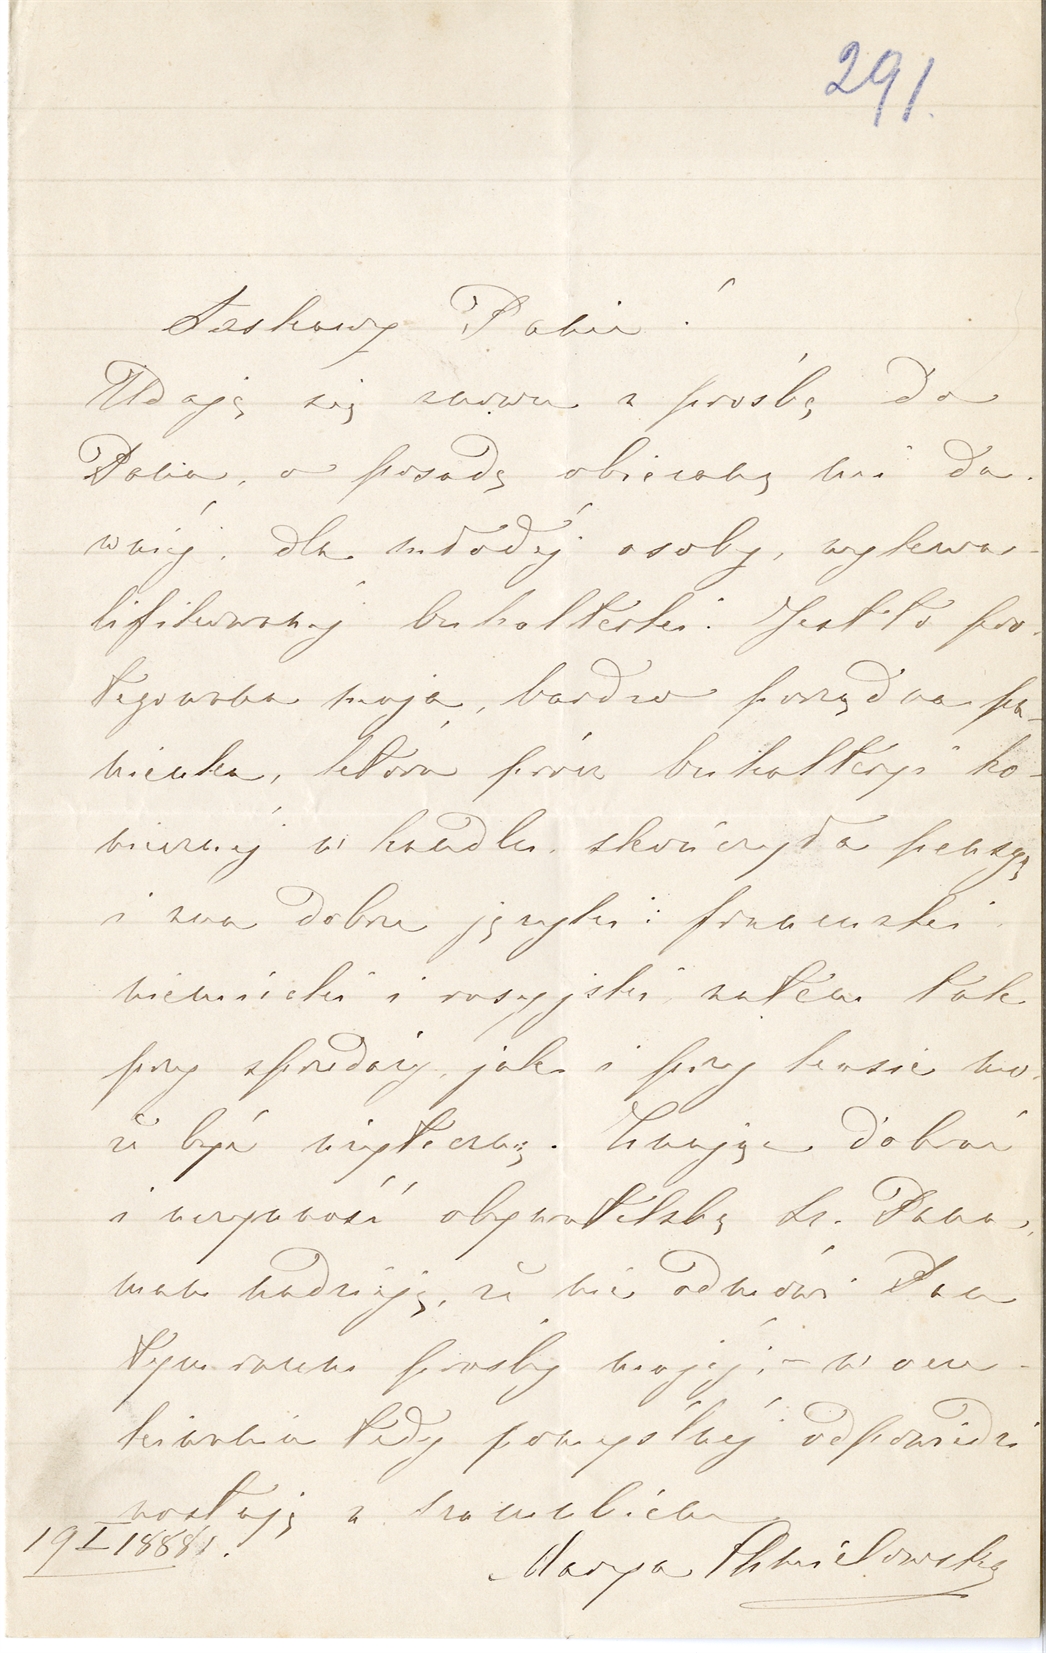 291.
Łaskawy Panie!
Udaję się znowu z prośbą do
Pana, o posadę obiecaną mi da-
wniéj, dla młodéj osoby, wykwa-
lifikowanéj buhalterki. Jest to pro-
tegowana moja, bardzo porządna pa-
nienka, która prócz buhalteryi ko-
niecznéj w handlu, skończyła pensyę
i zna dobrze języki: francuzki
niemiecki i rosyjski, zatém tak
przy sprzedaży, jak i przy kasie mo-
że być użyteczną. Znając dobroć
i uczynność obywatelską Sz. Pana,
mam nadzieję, że nie odmówi Pan
tym razem prośby mojéj; – w ocze-
kiwaniu tedy pomyślnéj odpowiedzi
zostaję z szacunkiem
19 I 1888 r.
Marya Chmielowska